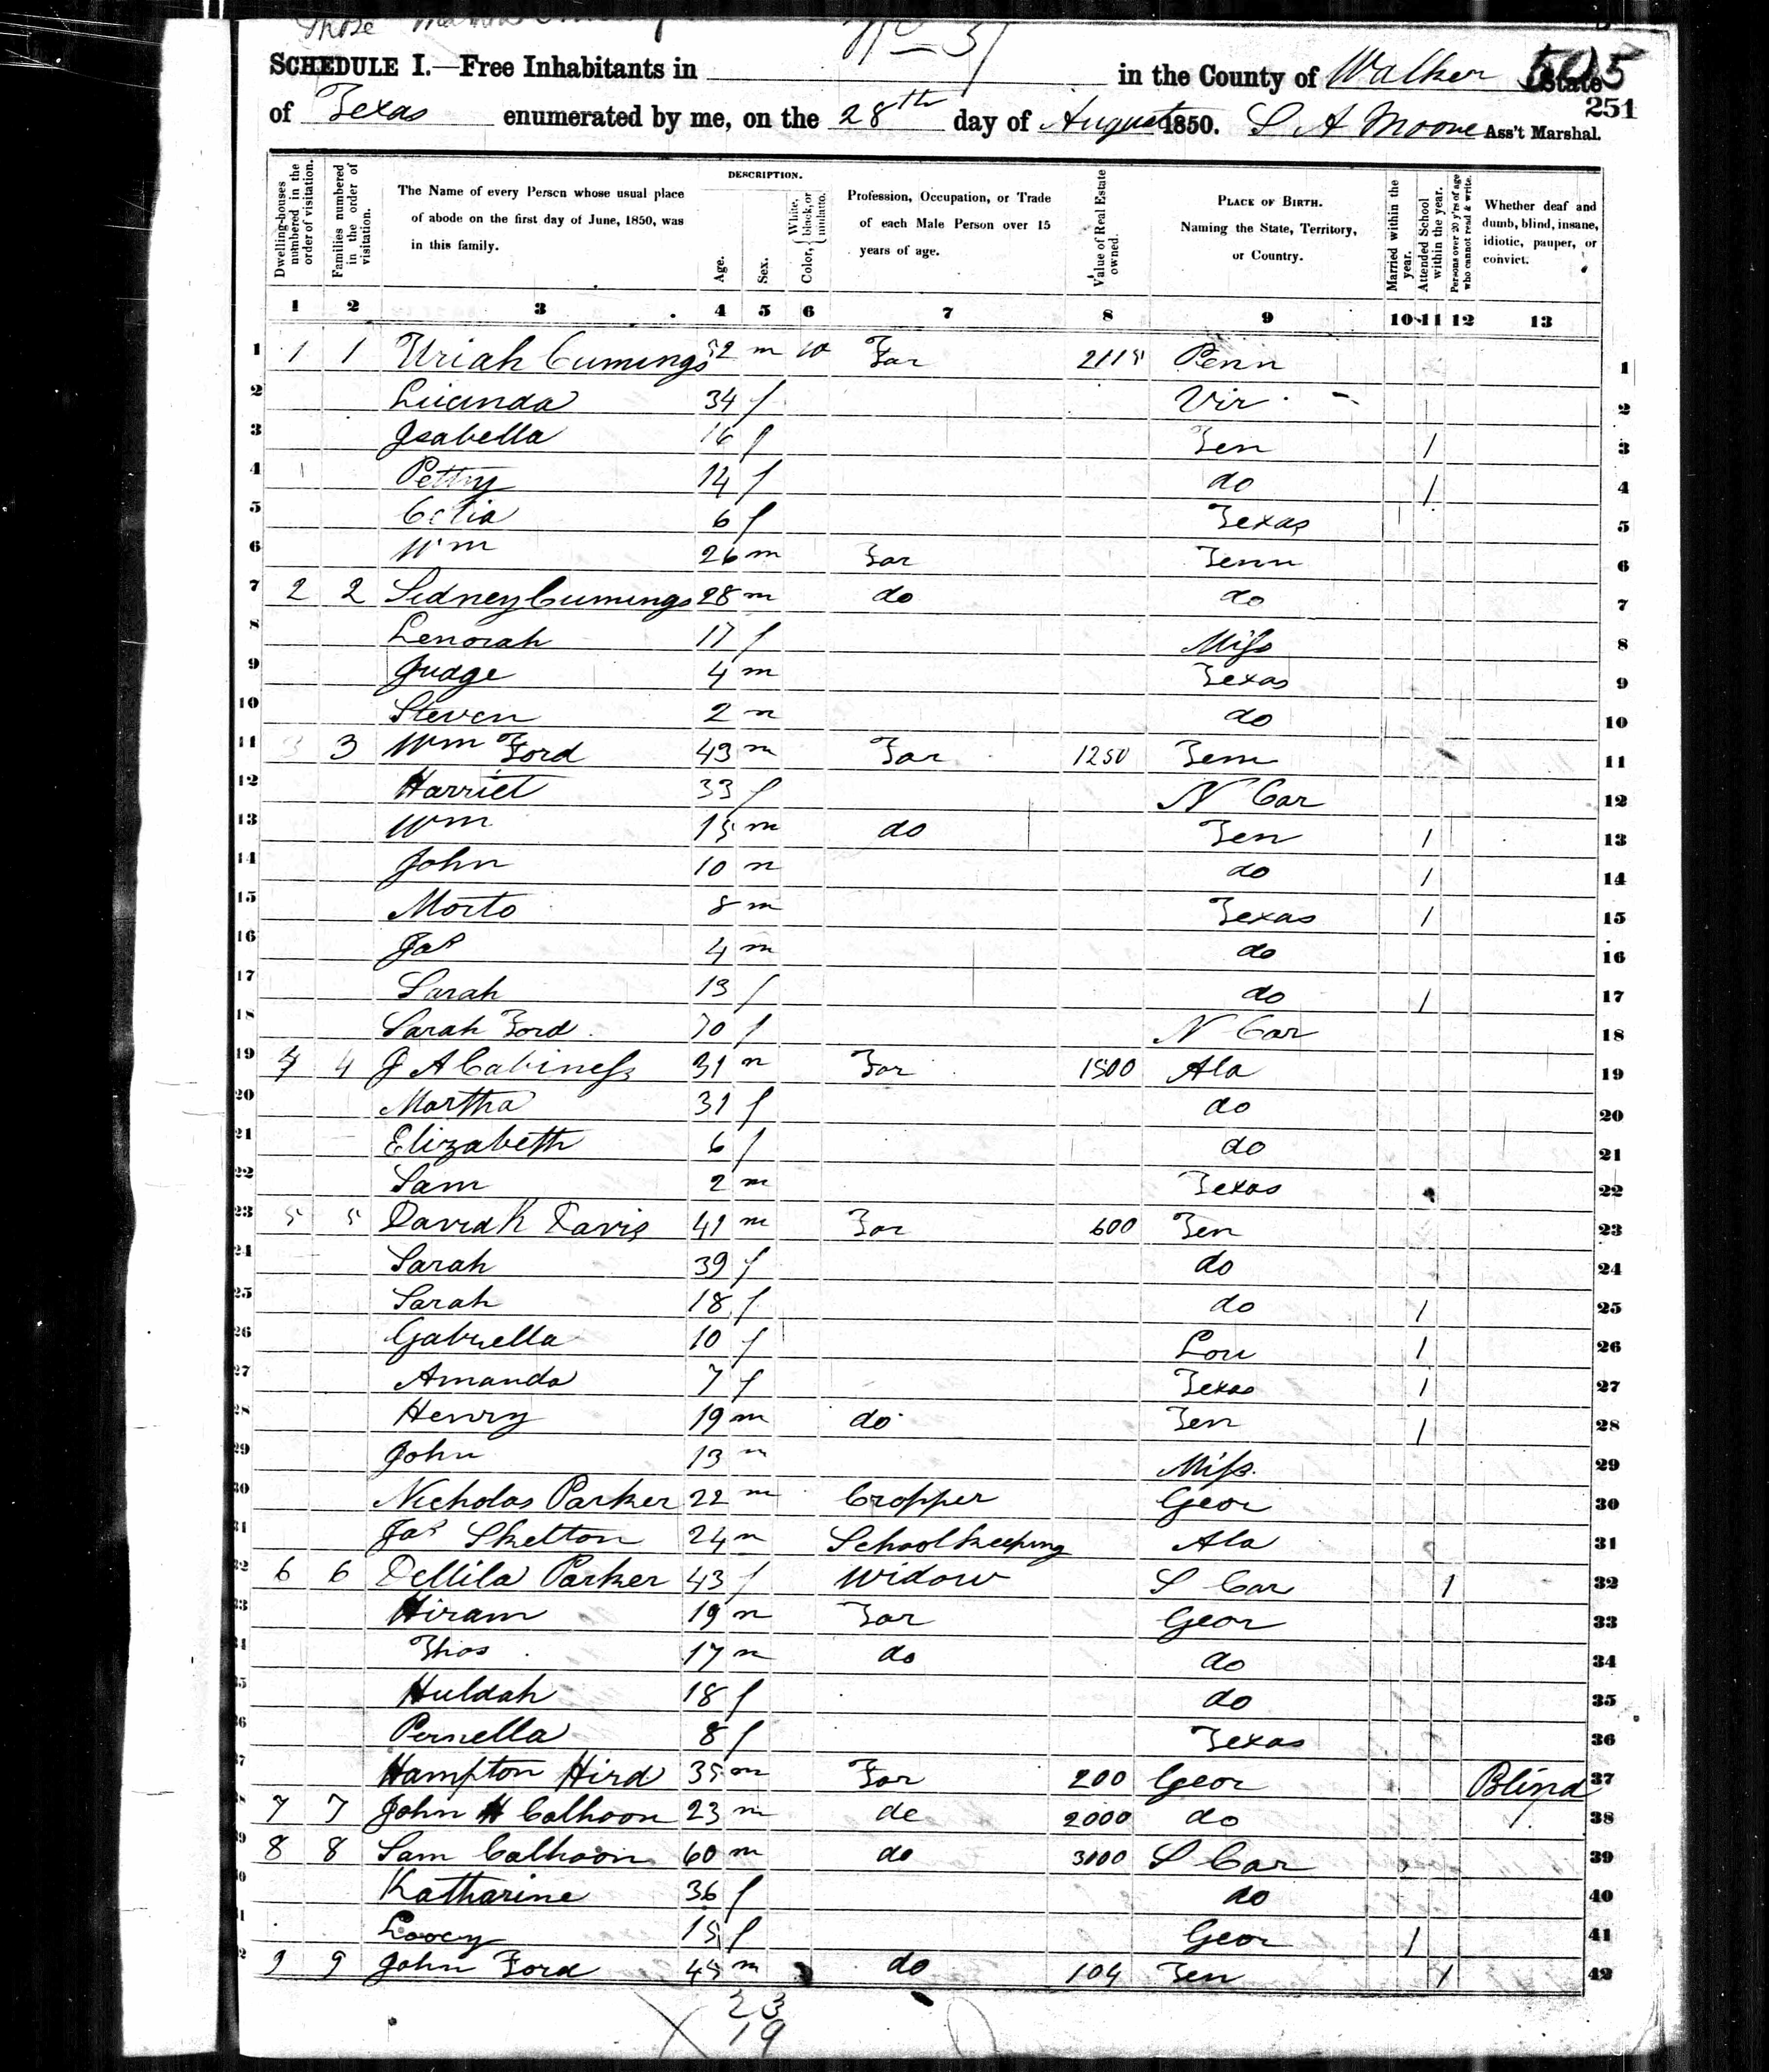 Those
No 51
SCHEDULE I.—Free Inhabitants in in the County of Walker State 505
251
of Texas enumerated by me, on the 28th day of August 1850. S A Moore Ass't Marshal.
Dwelling-houses numbered in the order of visitation.
Families numbered in the order of visitation.
The Name of every Person whose usual place of abode on the first day of June, 1850, was in this family.
DESCRIPTION.
Age.
Sex.
Color, { White, black, or mulatto.
Profession, Occupation, or Trade of each Male Person over 15 years of age.
Value of Real Estate owned.
PLACE OF BIRTH. Naming the State, Territory, or Country.
Married within the year.
Attended School within the year.
Persons over 20 y'rs of age who cannot read & write.
Whether deaf and dumb, blind, insane, idiotic, pauper, or convict.
1 2 3 4 5 6 7 8 9 10 11 12 13
1 1 1 Uriah Cumings 52 m Far 2115 Penn 1
2 Lucinda 34 f Vir 2
3 Isabella 16 f Ten 1 3
4 Petty 14 f do 1 4
5 Celia 6 f Texas 5
6 Wm 26 m Far Tenn 6
7 2 2 Sidney Cumings 28 m do do 7
8 Lenorah 17 f Miss 8
9 Judge 4 m Texas 9
10 Steven 2 m do 10
11 3 3 Wm Ford 43 m Far 1250 Tenn 11
12 Harriet 33 f N Car 12
13 Wm 15 m do Ten 1 13
14 John 10 m do 1 14
15 Morto 8 m Texas 1 15
16 Jas 4 m do 16
17 Sarah 13 f do 1 17
18 Sarah Ford 70 f N Car 18
19 4 4 J A Cabiness 31 m Far 1500 Ala 19
20 Martha 31 f do 20
21 Elizabeth 6 f do 21
22 Sam 2 m Texas 22
23 5 5 David K Davis 41 m Far 600 Ten 23
24 Sarah 39 f do 24
25 Sarah 18 f do 1 25
26 Gabriella 10 f Lou 1 26
27 Amanda 7 f Texas 1 27
28 Henry 19 m do Ten 1 28
29 John 13 m Miss 29
30 Nicholas Parker 22 m Cropper Geor 30
31 Jas Skelton 24 m School keeping Ala 31
32 6 6 Dellila Parker 43 f Widow S Car 1 32
33 Hiram 19 m Far Geor 33
34 Thos 17 m do do 34
35 Huldah 18 f do 35
36 Pernella 8 f Texas 36
37 Hampton Hird 35 m Far 200 Geor Blind 37
38 7 7 John H Calhoon 23 m do 2000 do 38
39 8 8 Sam Calhoon 60 m do 3100 S Car 39
40 Katharine 36 f do 40
41 Loocy 15 f Geor 1 41
42 9 9 John Ford 45 m do 104 Ten 1 42
23
19